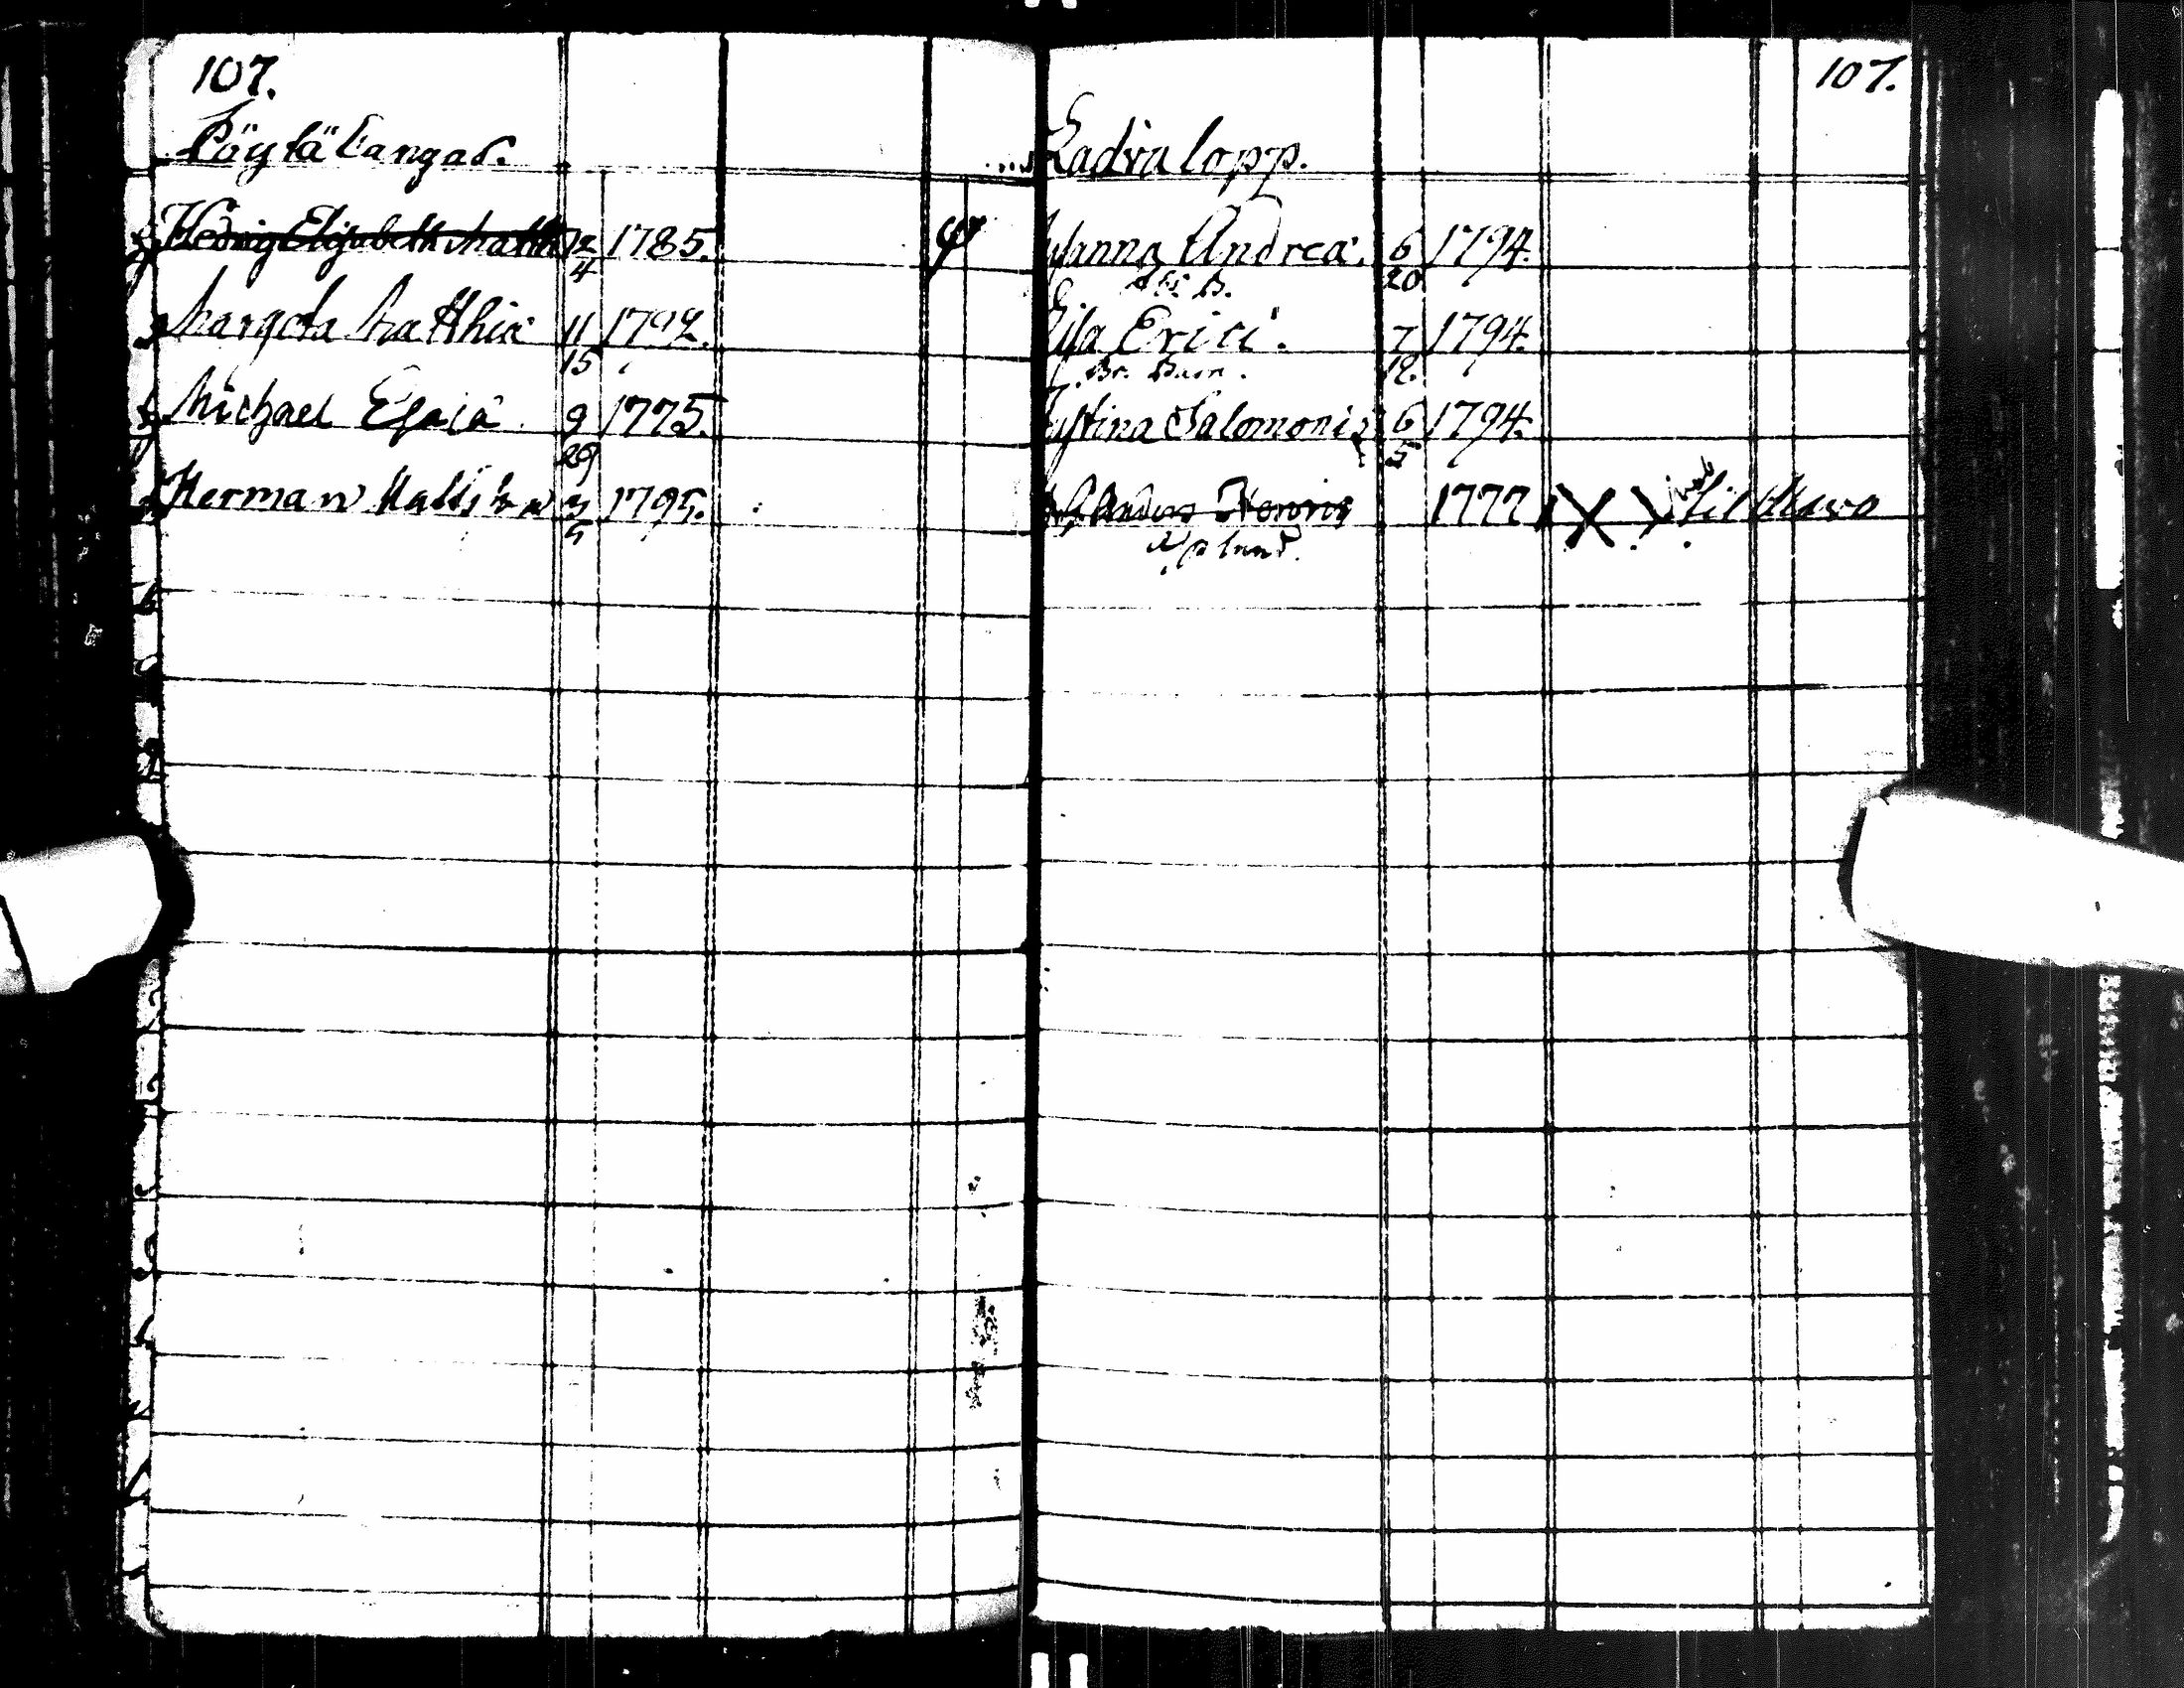 107.
Pöytäkangas.
Hedvig Elisabeth Matth 12/4 1785.
Margeta Matthiæ 11/15 1792.
Michael Esaiæ 9/29 1775.
Herman Mattsson 3/5 1795.
107.
Ladvalopp.
Susanna Andreæ. 6/20 1794.
Lisa Erici. 7/12. 1794.
Br. Barn.
Justina Salomonis 6/5 1794.
Anders Henric 1777 til